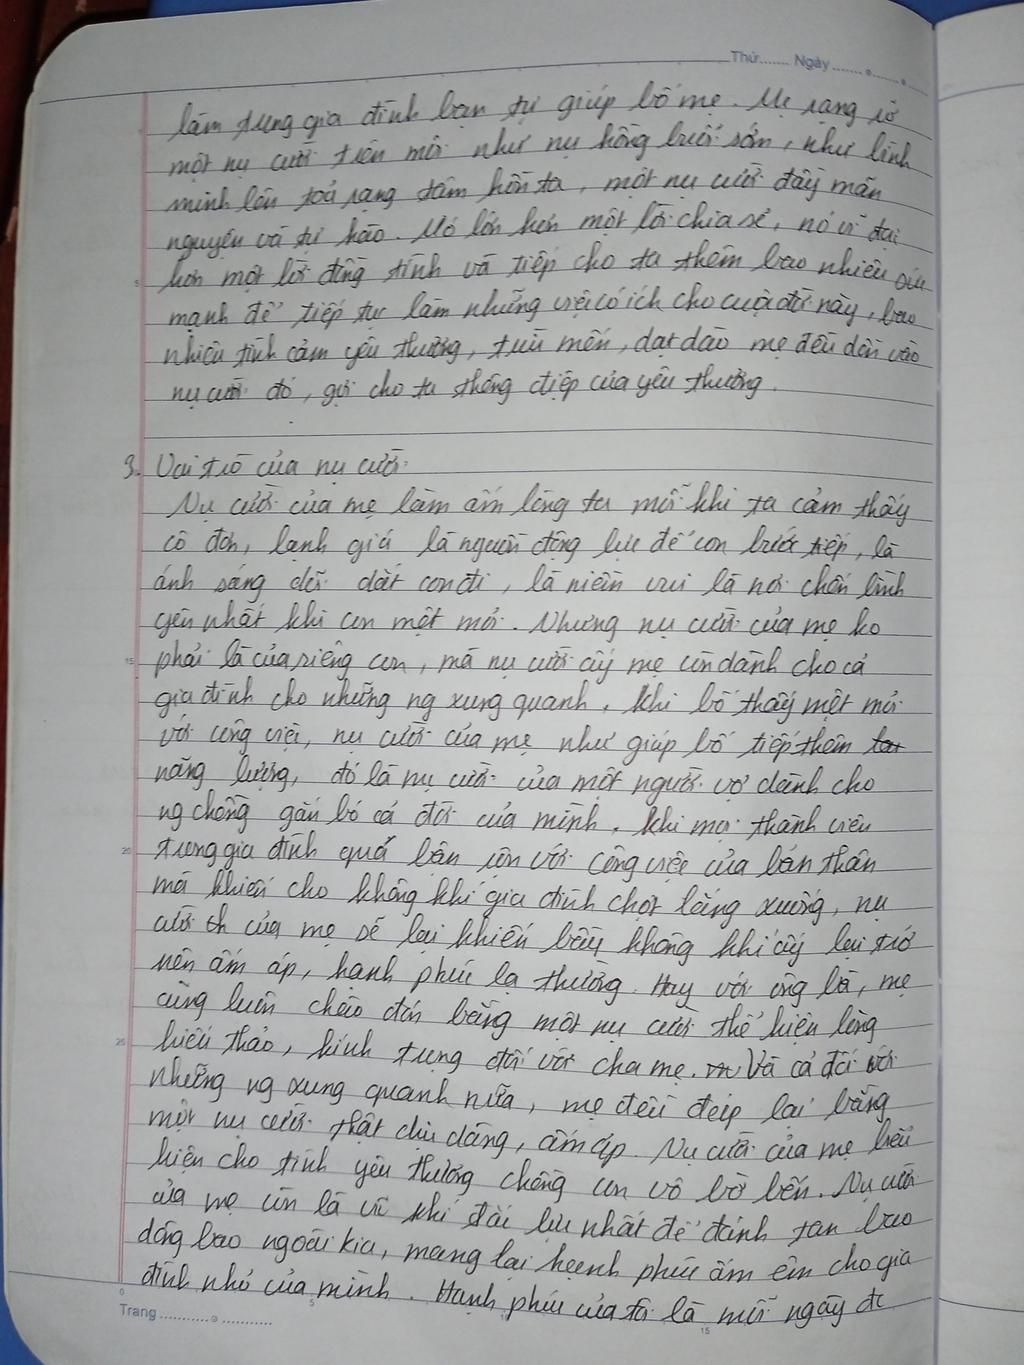 Thứ....... Ngày.......
làm trong gia đình bạn tự giúp bố mẹ. Mẹ rạng rỡ
một nụ cười trên môi như nụ hồng buổi sớm, như bình
minh lên toả rạng tâm hồn ta, một nụ cười đầy mãn
nguyện và tự hào. Nó lớn hơn một lời chia sẻ, nó vĩ đại
hơn một lời đồng tình và tiếp cho ta thêm bao nhiêu sức
mạnh để tiếp tục làm những việc có ích cho cuộc đời này, bao
nhiêu tình cảm yêu thương, trìu mến, dạt dào mẹ đều dồn vào
nụ cười đó, gửi cho ta thông điệp của yêu thương.
3. Vai trò của nụ cười.
Nụ cười của mẹ làm ấm lòng ta mỗi khi ta cảm thấy
cô đơn, lạnh giá là nguồn động lực để con bước tiếp, là
ánh sáng dẫn dắt con đi, là niềm vui là nơi chốn bình
yên nhất khi con mệt mỏi. Nhưng nụ cười của mẹ ko
phải là của riêng con, mà nụ cười ấy mẹ còn dành cho cả
gia đình cho những ng xung quanh. Khi bố thấy mệt mỏi
với công việc, nụ cười của mẹ như giúp bố tiếp thêm
năng lượng, đó là nụ cười của một người vợ dành cho
ng chồng gắn bó cả đời của mình. Khi mọi thành viên
trong gia đình quá bận rộn với công việc của bản thân
mà khiến cho không khí gia đình chợt lắng xuống, nụ
cười của mẹ sẽ lại khiến bầu không khí ấy lại trở
nên ấm áp, hạnh phúc lạ thường. Hay với ông bà, mẹ
cũng luôn chào đón bằng một nụ cười thể hiện lòng
hiếu thảo, kính trọng đối với cha mẹ. Và cả đối với
những ng xung quanh nữa, mẹ đều đáp lại bằng
một nụ cười thật dịu dàng, ấm áp. Nụ cười của mẹ biểu
hiện cho tình yêu thương chồng con vô bờ bến. Nụ cười
của mẹ còn là vũ khí đắc lực nhất để đánh tan bao
dông bão ngoài kia, mang lại hạnh phúc ấm êm cho gia
đình nhỏ của mình. Hạnh phúc của tôi là mỗi ngày đi
Trang